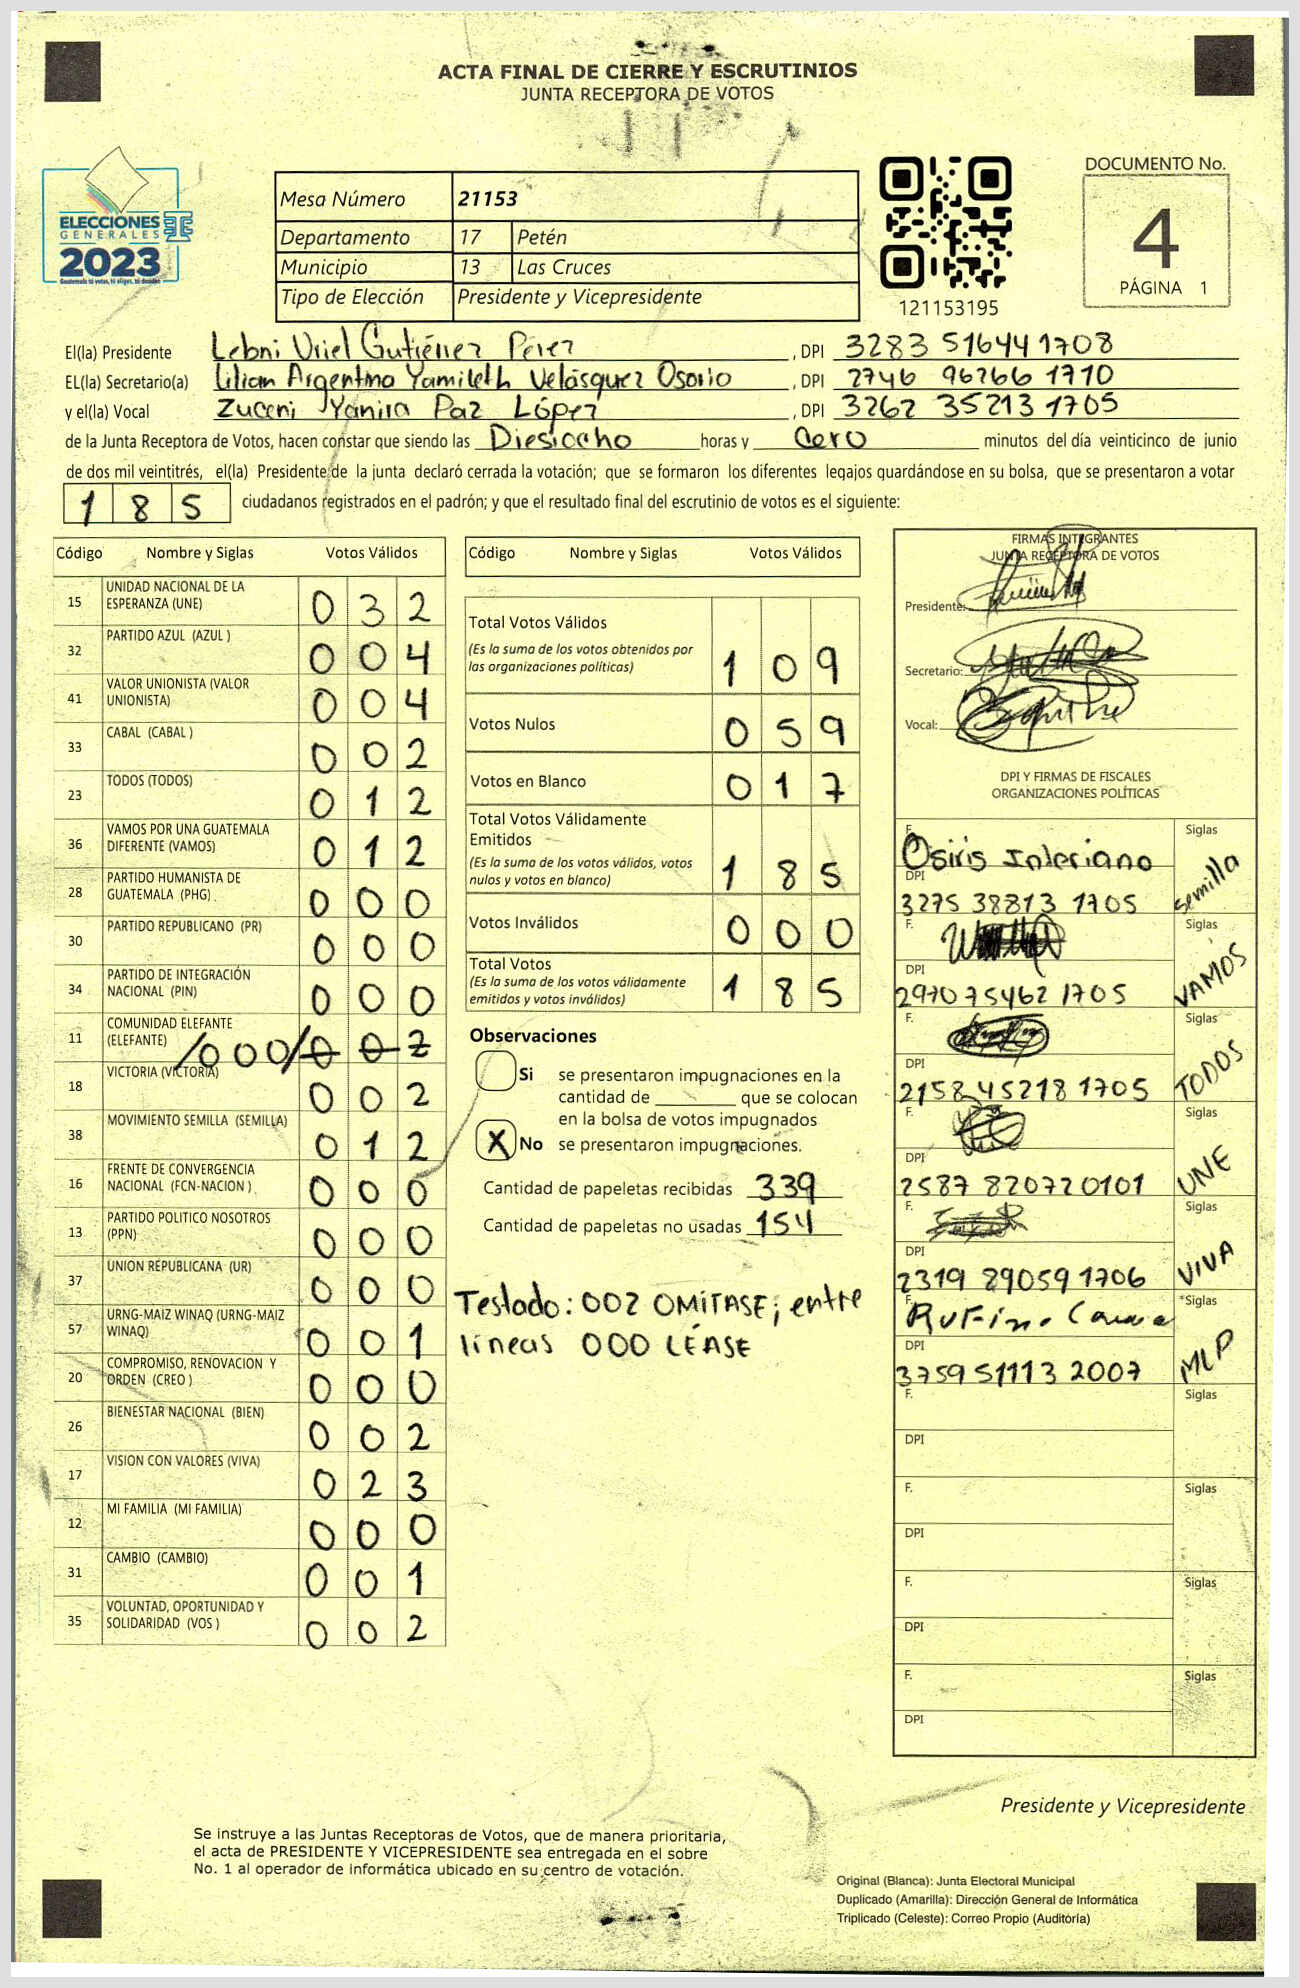 ACTA FINAL DE CIERRE Y ESCRUTINIOS
JUNTA RECEPTORA DE VOTOS
ELECCIONES
GENERALES
2023
Mesa Número 21153
Departamento 17 Petén
Municipio 13 Las Cruces
Tipo de Elección Presidente y Vicepresidente
121153195
DOCUMENTO No.
4
PÁGINA 1
El(la) Presidente Lebni Uriel Gutiérrez Pérez , DPI 3283 51644 1708
EL(la) Secretario(a) Lilian Argentina Yamileth Velásquez Osorio , DPI 2746 96266 1710
y el(la) Vocal Zuceni Yanira Paz López , DPI 3262 35213 1705
de la Junta Receptora de Votos, hacen constar que siendo las Diesiocho horas y Cero minutos del día veinticinco de junio
de dos mil veintitrés, el(la) Presidente de la junta declaró cerrada la votación; que se formaron los diferentes legajos guardándose en su bolsa, que se presentaron a votar
185 ciudadanos registrados en el padrón; y que el resultado final del escrutinio de votos es el siguiente:
Código Nombre y Siglas Votos Válidos
15 UNIDAD NACIONAL DE LA
ESPERANZA (UNE) 032
32 PARTIDO AZUL (AZUL ) 004
41 VALOR UNIONISTA (VALOR
UNIONISTA) 004
33 CABAL (CABAL ) 002
23 TODOS (TODOS) 012
36 VAMOS POR UNA GUATEMALA
DIFERENTE (VAMOS) 012
28 PARTIDO HUMANISTA DE
GUATEMALA (PHG) 000
30 PARTIDO REPUBLICANO (PR) 000
34 PARTIDO DE INTEGRACIÓN
NACIONAL (PIN) 000
11 COMUNIDAD ELEFANTE
(ELEFANTE) /000/ 002
18 VICTORIA (VICTORIA) 002
38 MOVIMIENTO SEMILLA (SEMILLA) 012
16 FRENTE DE CONVERGENCIA
NACIONAL (FCN-NACION ) 000
13 PARTIDO POLITICO NOSOTROS
(PPN) 000
37 UNION REPUBLICANA (UR) 000
57 URNG-MAIZ WINAQ (URNG-MAIZ
WINAQ) 001
20 COMPROMISO, RENOVACION Y
ORDEN (CREO ) 000
26 BIENESTAR NACIONAL (BIEN) 002
17 VISION CON VALORES (VIVA) 023
12 MI FAMILIA (MI FAMILIA) 000
31 CAMBIO (CAMBIO) 001
35 VOLUNTAD, OPORTUNIDAD Y
SOLIDARIDAD (VOS ) 002
Código Nombre y Siglas Votos Válidos
Total Votos Válidos
(Es la suma de los votos obtenidos por
las organizaciones políticas) 109
Votos Nulos 059
Votos en Blanco 017
Total Votos Válidamente
Emitidos
(Es la suma de los votos válidos, votos
nulos y votos en blanco) 185
Votos Inválidos 000
Total Votos
(Es la suma de los votos válidamente
emitidos y votos inválidos) 185
Observaciones
Si se presentaron impugnaciones en la
cantidad de ________ que se colocan
en la bolsa de votos impugnados
X No se presentaron impugnaciones.
Cantidad de papeletas recibidas 339
Cantidad de papeletas no usadas 154
Testado: 002 OMITASE; entre
líneas 000 LÉASE
FIRMAS INTEGRANTES
JUNTA RECEPTORA DE VOTOS
Presidente:
Secretario:
Vocal:
DPI Y FIRMAS DE FISCALES
ORGANIZACIONES POLÍTICAS
F. Osiris Interiano Siglas
DPI 3275 38813 1705 semilla
F. Siglas
DPI 2970 75462 1705 VAMOS
F. Siglas
DPI 2158 45218 1705 TODOS
F. Siglas
DPI 2587 82072 0101 UNE
F. Siglas
DPI 2319 89059 1706 VIVA
F. Siglas
DPI 3759 51113 2007 MLP
F. Siglas
DPI
F. Siglas
DPI
F. Siglas
DPI
F. Siglas
DPI
Presidente y Vicepresidente
Se instruye a las Juntas Receptoras de Votos, que de manera prioritaria,
el acta de PRESIDENTE Y VICEPRESIDENTE sea entregada en el sobre
No. 1 al operador de informática ubicado en su centro de votación.
Original (Blanca): Junta Electoral Municipal
Duplicado (Amarilla): Dirección General de Informática
Triplicado (Celeste): Correo Propio (Auditoría)